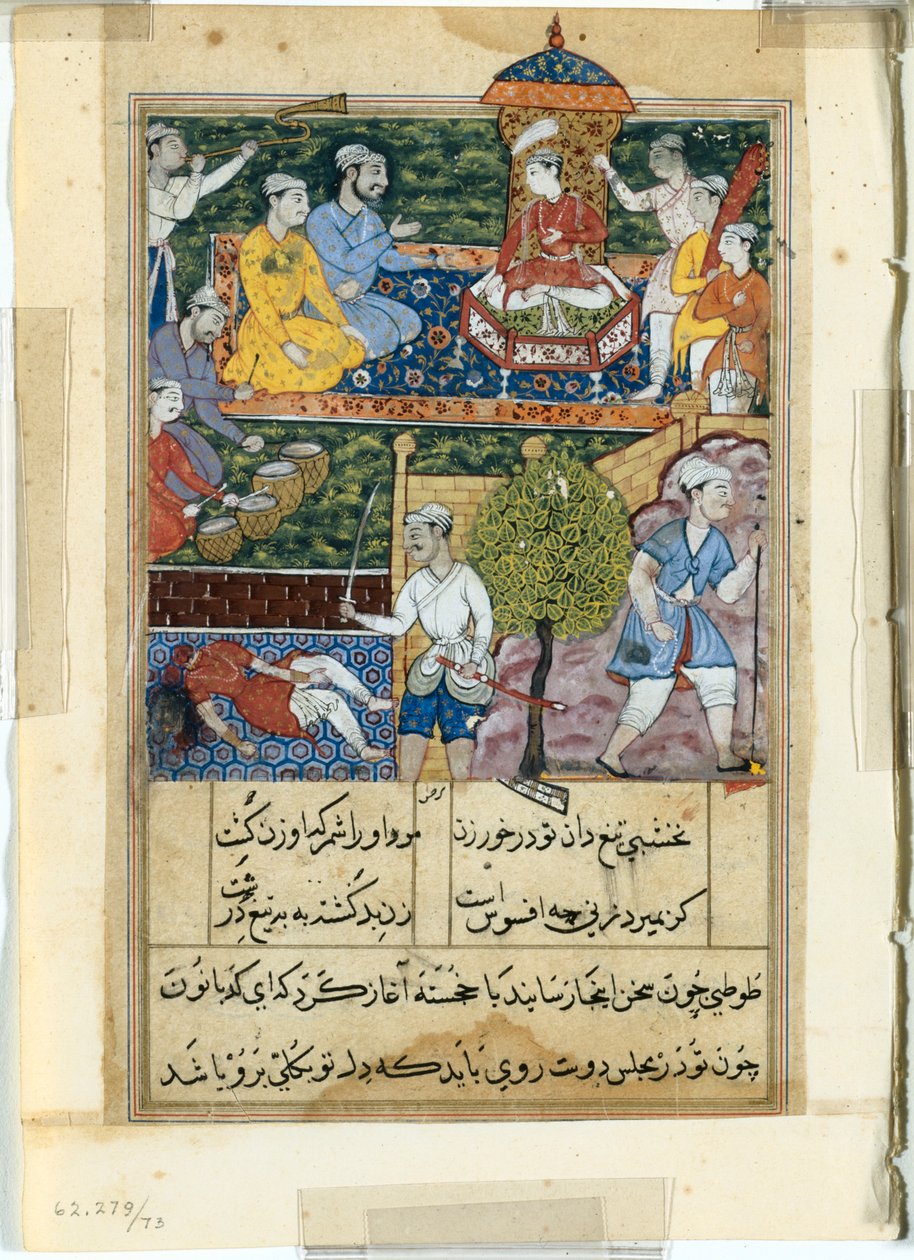 نخشبي تيغ دان تو درخور زن مرد او را شمر که او زن کُشت
کر نميرد زني چه افسوس است زنِ بد کُشته به به تيغ درشت
طُوطيِ چُونَ سخن اينجا رَسانيد بَا خجُستَه آغاز کَرَد کداي کدبانون
چوَن توُ دَر مجلس دوست روي بَايد که دِل تو بکُليّ بَرو باشد
62.279/73